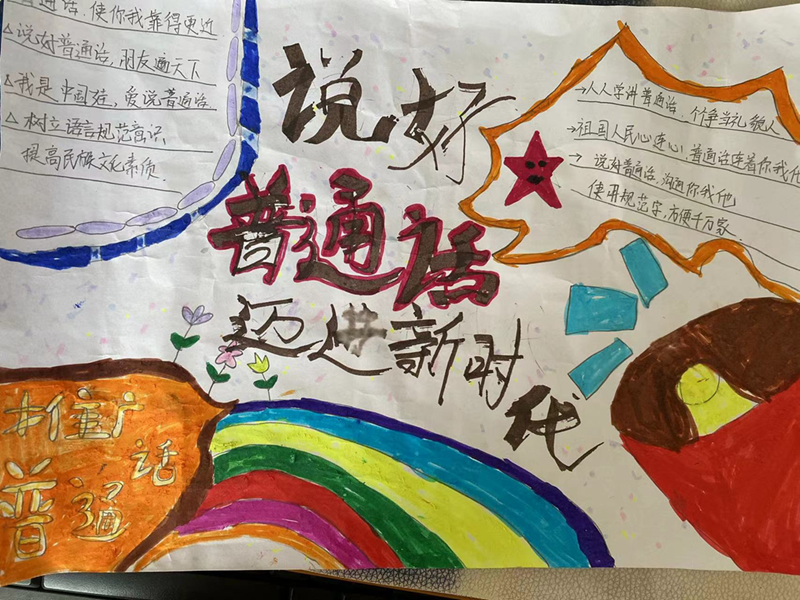 普通话,使你我靠得更近
△说好普通话,朋友遍天下
△我是中国娃,爱说普通话
△ 树立语言规范意识
提高民族文化素质.
说好
普通话
迈进新时代
→人人学讲普通话,个个争当礼貌人
→祖国人民心连心,普通话连着你我他
→ 说好普通话,沟通你我他
使用规范字,方便千万家.
推广
普通话